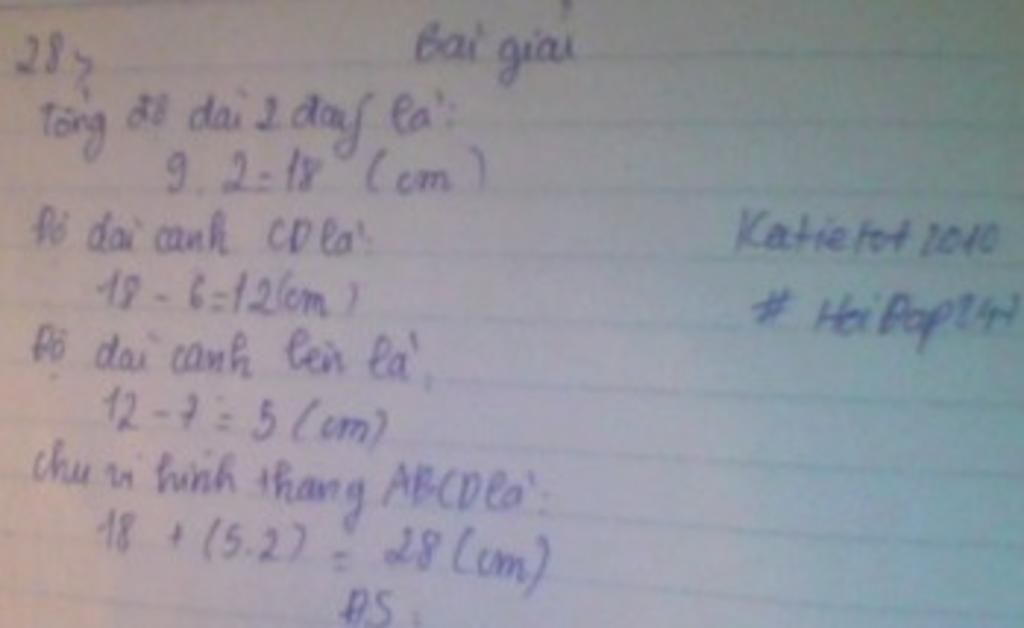 28>
Bài giải
Tổng độ dài 2 đáy là:
9. 2=18 (cm)
Độ dài cạnh CD là:
18 - 6=12(cm)
Độ dài cạnh bên là:
12 - 7 = 5 (cm)
chu vi hình thang ABCD là:
18 + (5.2) = 28 (cm)
ĐS:
Katietot 2010
# HoiDap24h